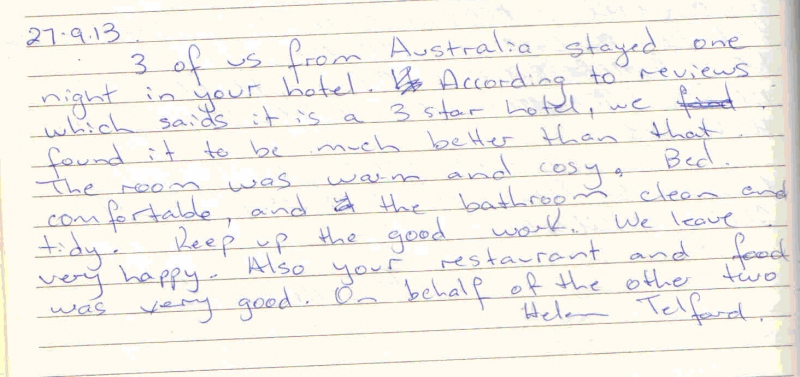 27.9.13.
3 of us from Australia stayed one
night in your hotel. According to reviews
which saids it is a 3 star hotel, we
found it to be much better than that.
The room was warm and cosy. Bed.
comfortable, and the bathroom clean and
tidy. Keep up the good work. We leave
very happy. Also your restaurant and food
was very good. On behalf of the other two
Helen Telfard.